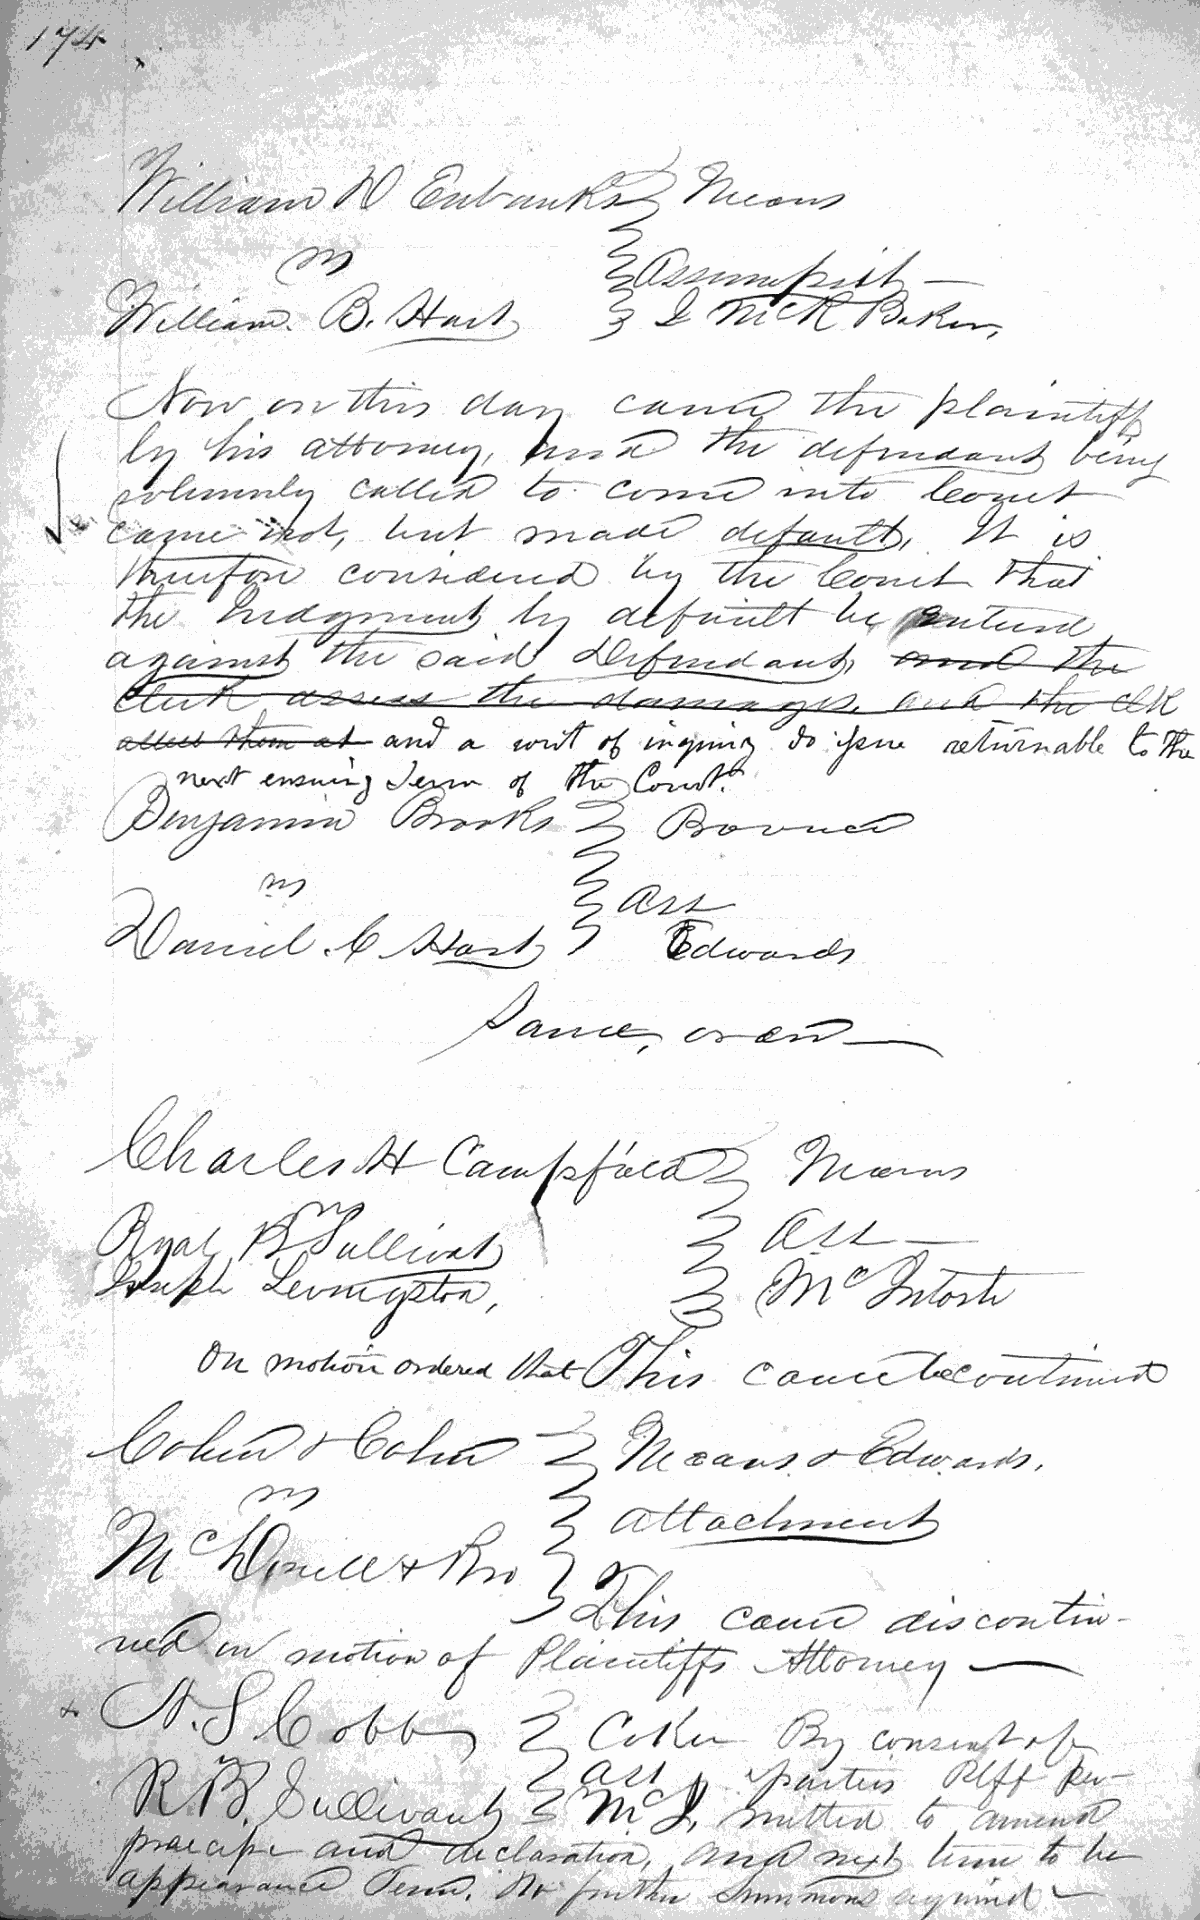 174
William D Eubanks } Means
vs
Assumpsit —
William. B. Hart } I McR Baker,
Now on this day came the plaintiff
by his attorney, and the defendant being
solemnly called to come into Court
came not, but made default. It is
therefore considered by the Court that
the Judgment by default be entered
against the said Defendant, and the
Clerk assess the damages. and the Clk
assess them at and a writ of inquiry do issue returnable to the
next ensuing Term of the Court.
Benjamin Brooks }
vs
Ass
Daniel. C Hart } Edwards
Same, order —
Charles H Campfield } Means
vs
Ryal B Sullivant } Ass —
Joseph Levingston, } McIntosh
On motion ordered that This cause be continued
Cohen & Cohen } Means & Edwards.
vs
Attachment
McDonell & Bro
This cause discontin-
ued on motion of Plaintiffs Attorney —
N. S. Cobb } Coker By consent of
Ass parties Plff per-
R. B. Sullivant } McI. mitted to amend
praecipe and declaration, and next term to be
appearance Term. No further Summons required —